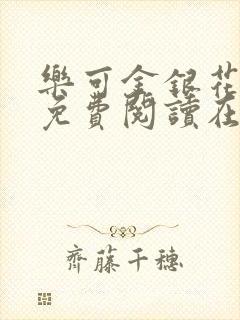 樂可金銀花
免費閱讀在
齊藤千穗